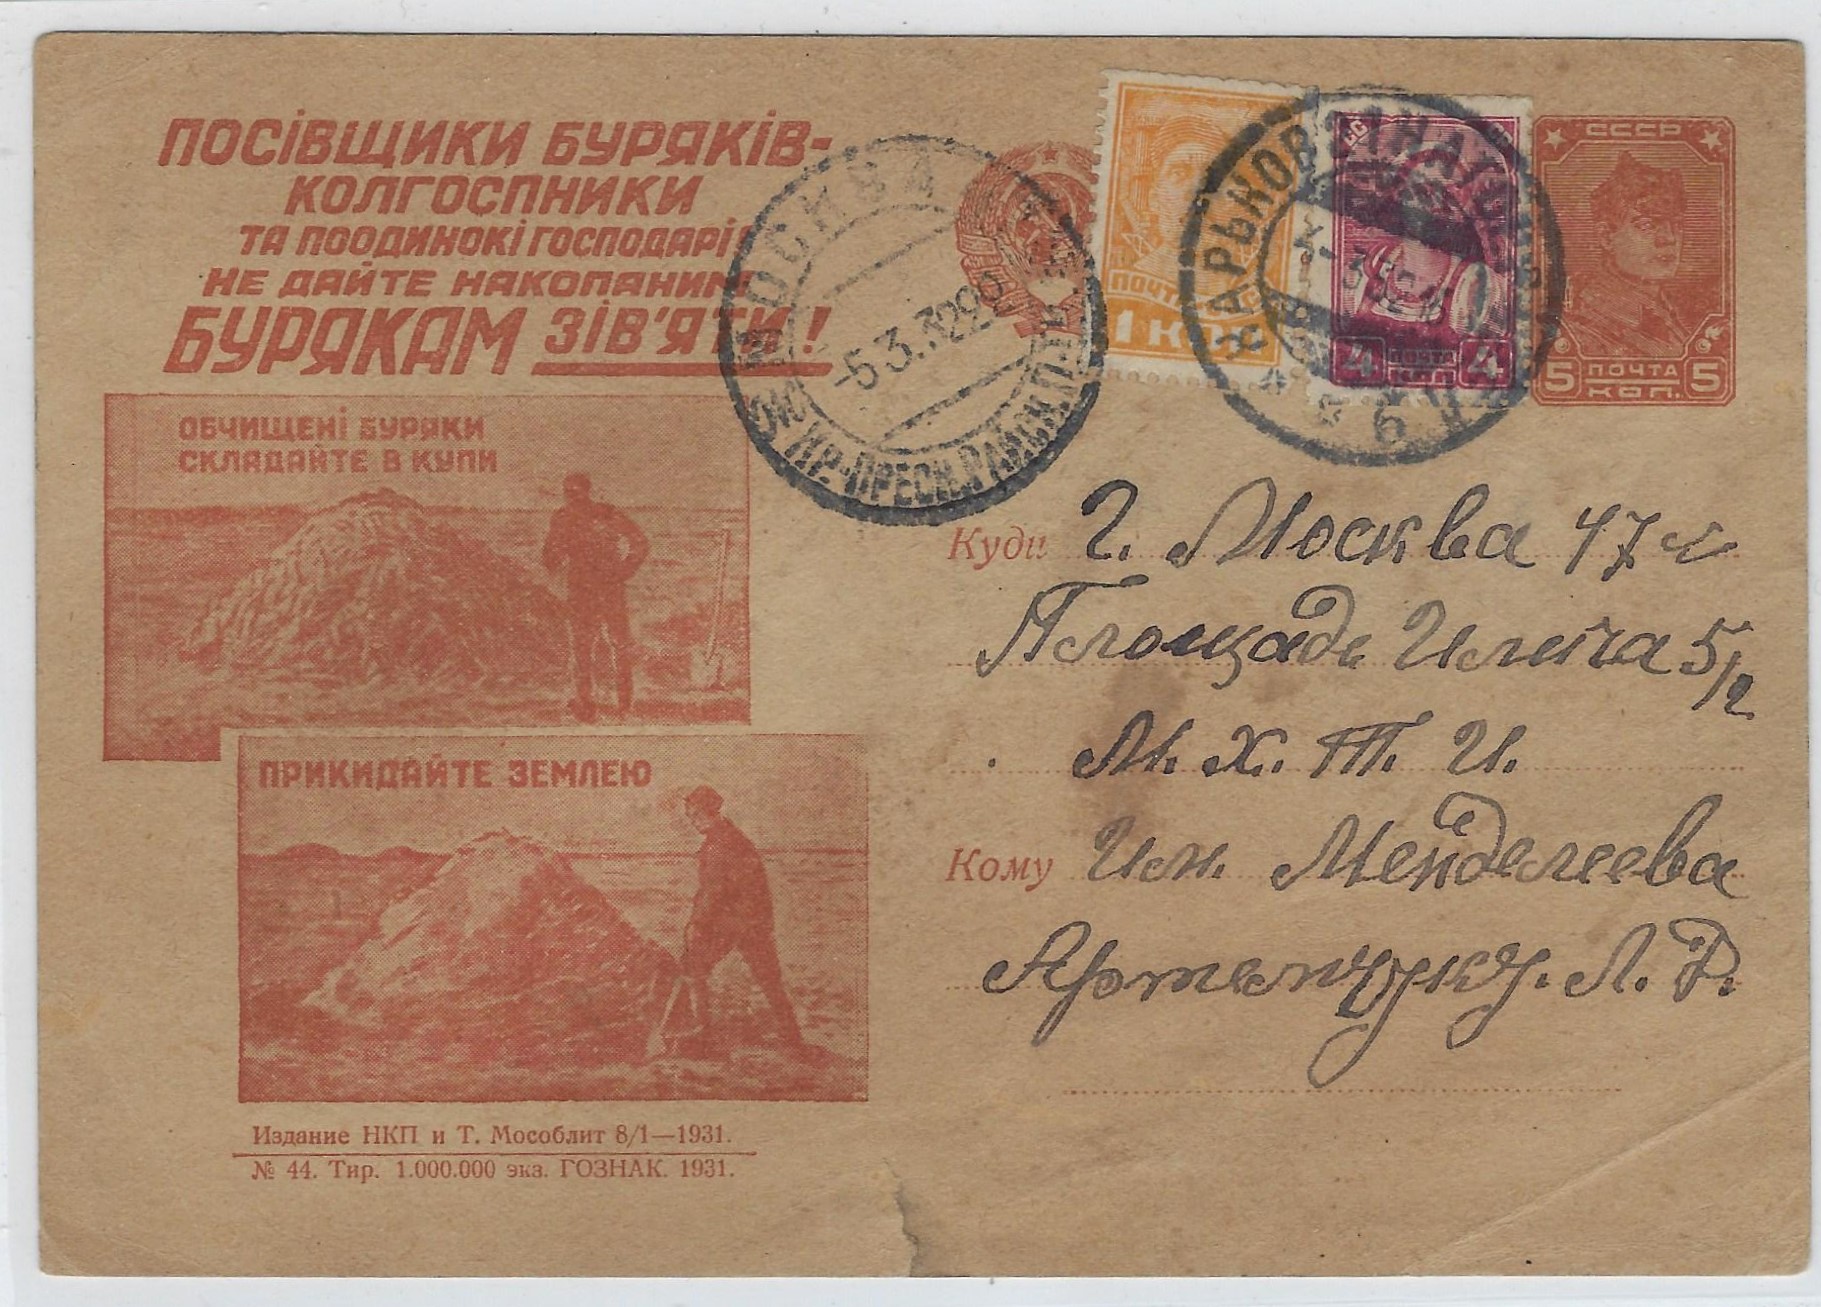 ПОСІВЩИКИ БУРЯКІВ-
КОЛГОСПНИКИ
ТА ПООДИНОКІ ГОСПОДАРІ
НЕ ДАЙТЕ НАКОПАНИМ
БУРЯКАМ ЗІВ'ЯТИ!
ОБЧИЩЕНІ БУРЯКИ
СКЛАДАЙТЕ В КУПИ
ПРИКИДАЙТЕ ЗЕМЛЕЮ
Издание НКП и Т. Мособлит 8/1—1931.
№ 44. Тир. 1.000.000 экз. ГОЗНАК. 1931.
МОСКВА
-5.3.32
КР.-ПРЕСН. РАЙОН.
ПОЧТА
1 КОП
4 ПОЧТА 4
КОП
СССР
5 ПОЧТА 5
КОП.
Куди г. Москва 47
Площадь Ильича 5/2
М. Х. Т. И.
Кому Им. Менделеева
Артемчуку. Л. Р.